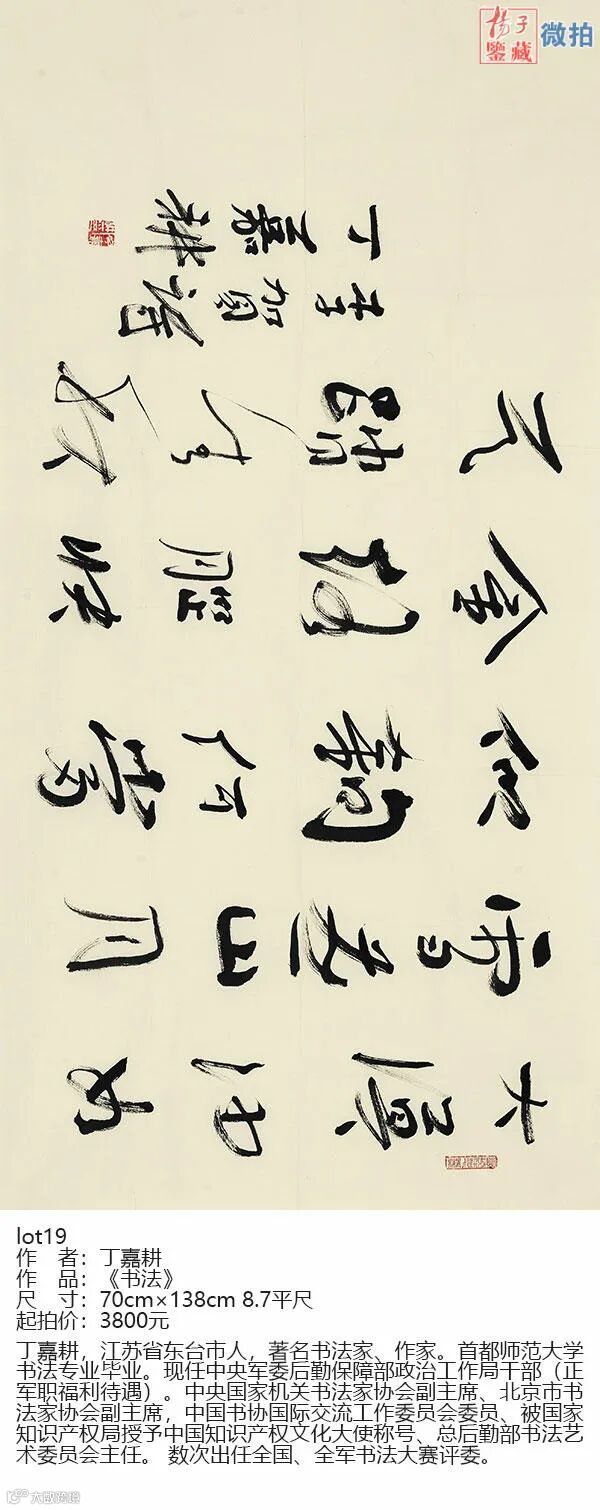 揚子
鑒藏
微拍
大漠沙如
雪燕山月
似鉤何當
金絡腦快
走踏清秋
李賀詩
丁嘉耕
lot19
作 者：丁嘉耕
作 品：《书法》
尺 寸：70cm×138cm 8.7平尺
起拍价：3800元
丁嘉耕，江苏省东台市人，著名书法家、作家。首都师范大学
书法专业毕业。现任中央军委后勤保障部政治工作局干部（正
军职福利待遇）。中央国家机关书法家协会副主席、北京市书
法家协会副主席，中国书协国际交流工作委员会委员、被国家
知识产权局授予中国知识产权文化大使称号、总后勤部书法艺
术委员会主任。 数次出任全国、全军书法大赛评委。
大数跨境